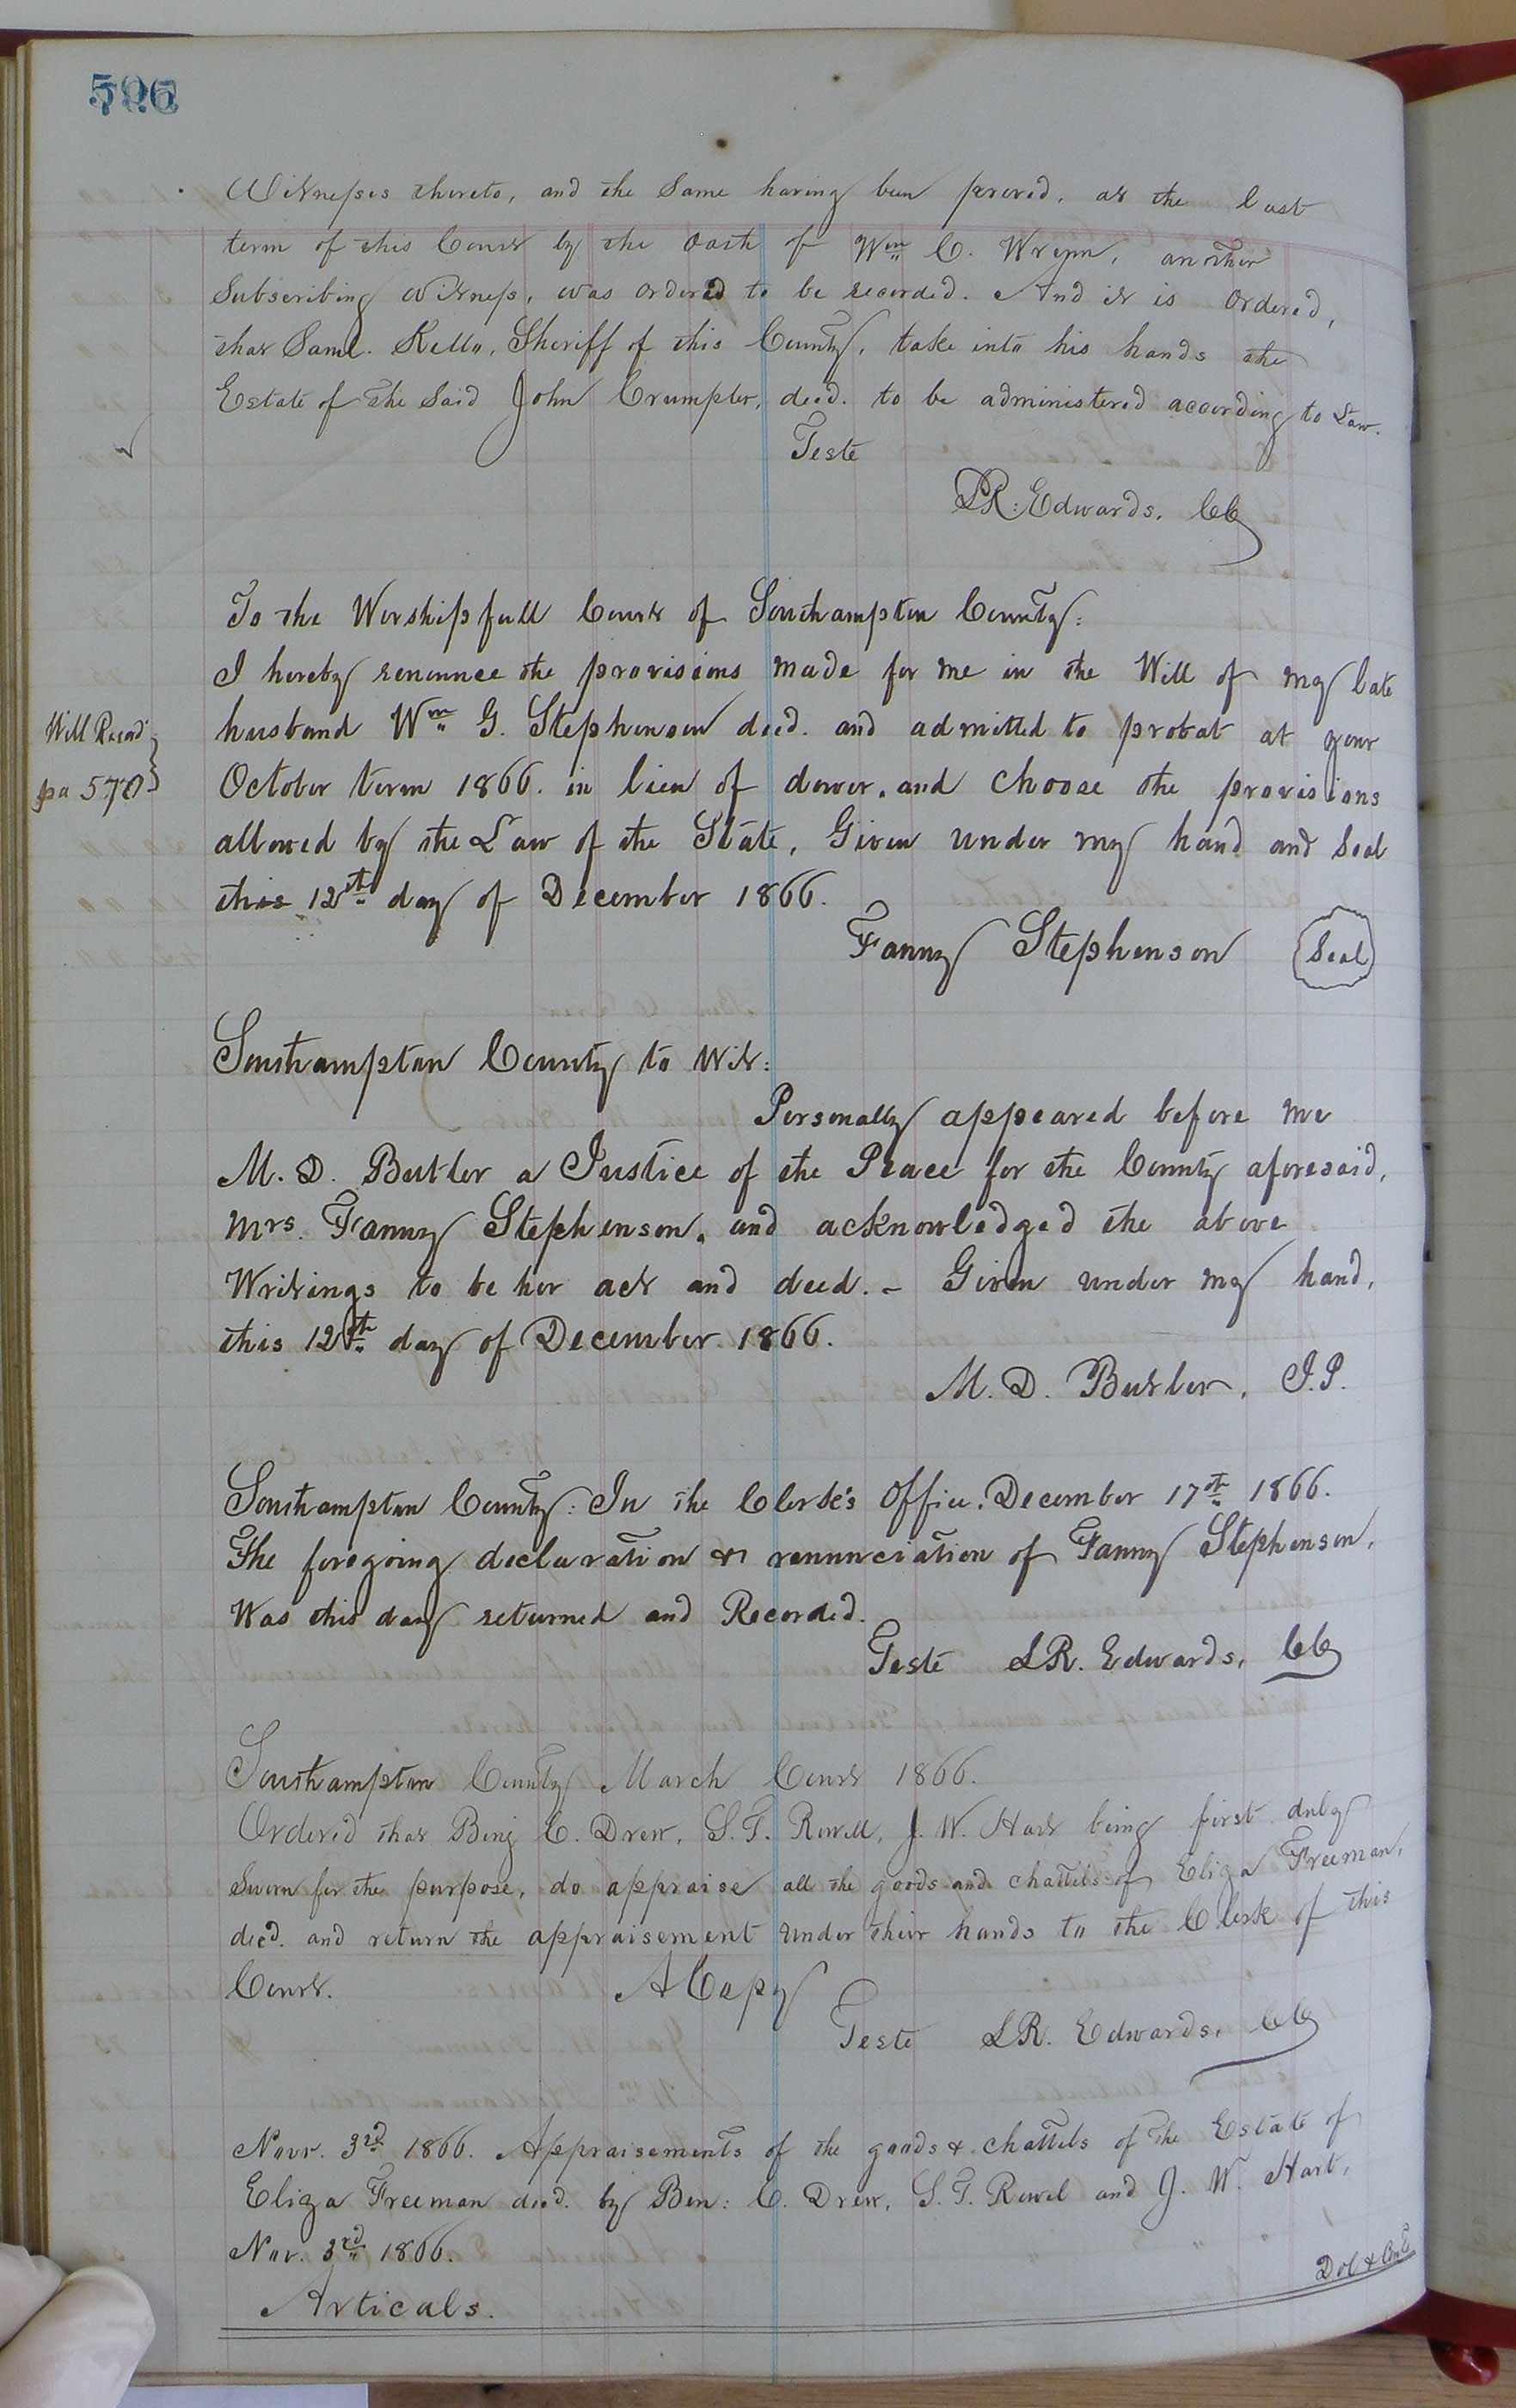 596
Witnesses thereto, and the Same having been proved, at the last
term of this Court by the Oath of Wm C. Wrenn, another
Subscribing Witness, was ordered to be recorded. And it is Ordered,
that Saml. Kello, Sheriff of this County, take into his hands the
Estate of the Said John Crumpler, decd. to be administered according to Law.
Teste
LR. Edwards, CC
To the Worshipfull Court of Southampton County:
I hereby renounce the provisions made for me in the Will of my late
husband Wm G. Stephenson decd. and admitted to probat at your
October term 1866. in lieu of dower, and choose the provisions
allowed by the Law of the State, Given under my hand and Seal
this 12th day of December 1866.
Will Record
pa 570
Fanny Stephenson Seal
Southampton County to Wit:
Personally appeared before me
M. D. Butler a Justice of the Peace for the County aforesaid,
Mrs. Fanny Stephenson, and acknowledged the above
Writings to be her act and deed. - Given under my hand,
this 12th day of December 1866.
M. D. Butler, J.P.
Southampton County: In the Clerk's Office, December 17th 1866.
The foregoing declaration & renunciation of Fanny Stephenson,
Was this day returned and Recorded.
Teste LR. Edwards, CC
Southampton County March Court 1866.
Ordered that Benj C. Drew, S. T. Rowell, J. W. Hart being first duly
Sworn for the purpose, do appraise all the goods and chattels of Eliza Freeman,
decd. and return the appraisement under their hands to the Clerk of this
Court. A Copy
Teste LR. Edwards, CC
Novr. 3rd 1866. Appraisements of the goods & chattels of the Estate of
Eliza Freeman decd. by Ben: C. Drew, S. T. Rowel and J. W. Hart,
Nov. 3rd 1866.
Articals. Dol & Cents